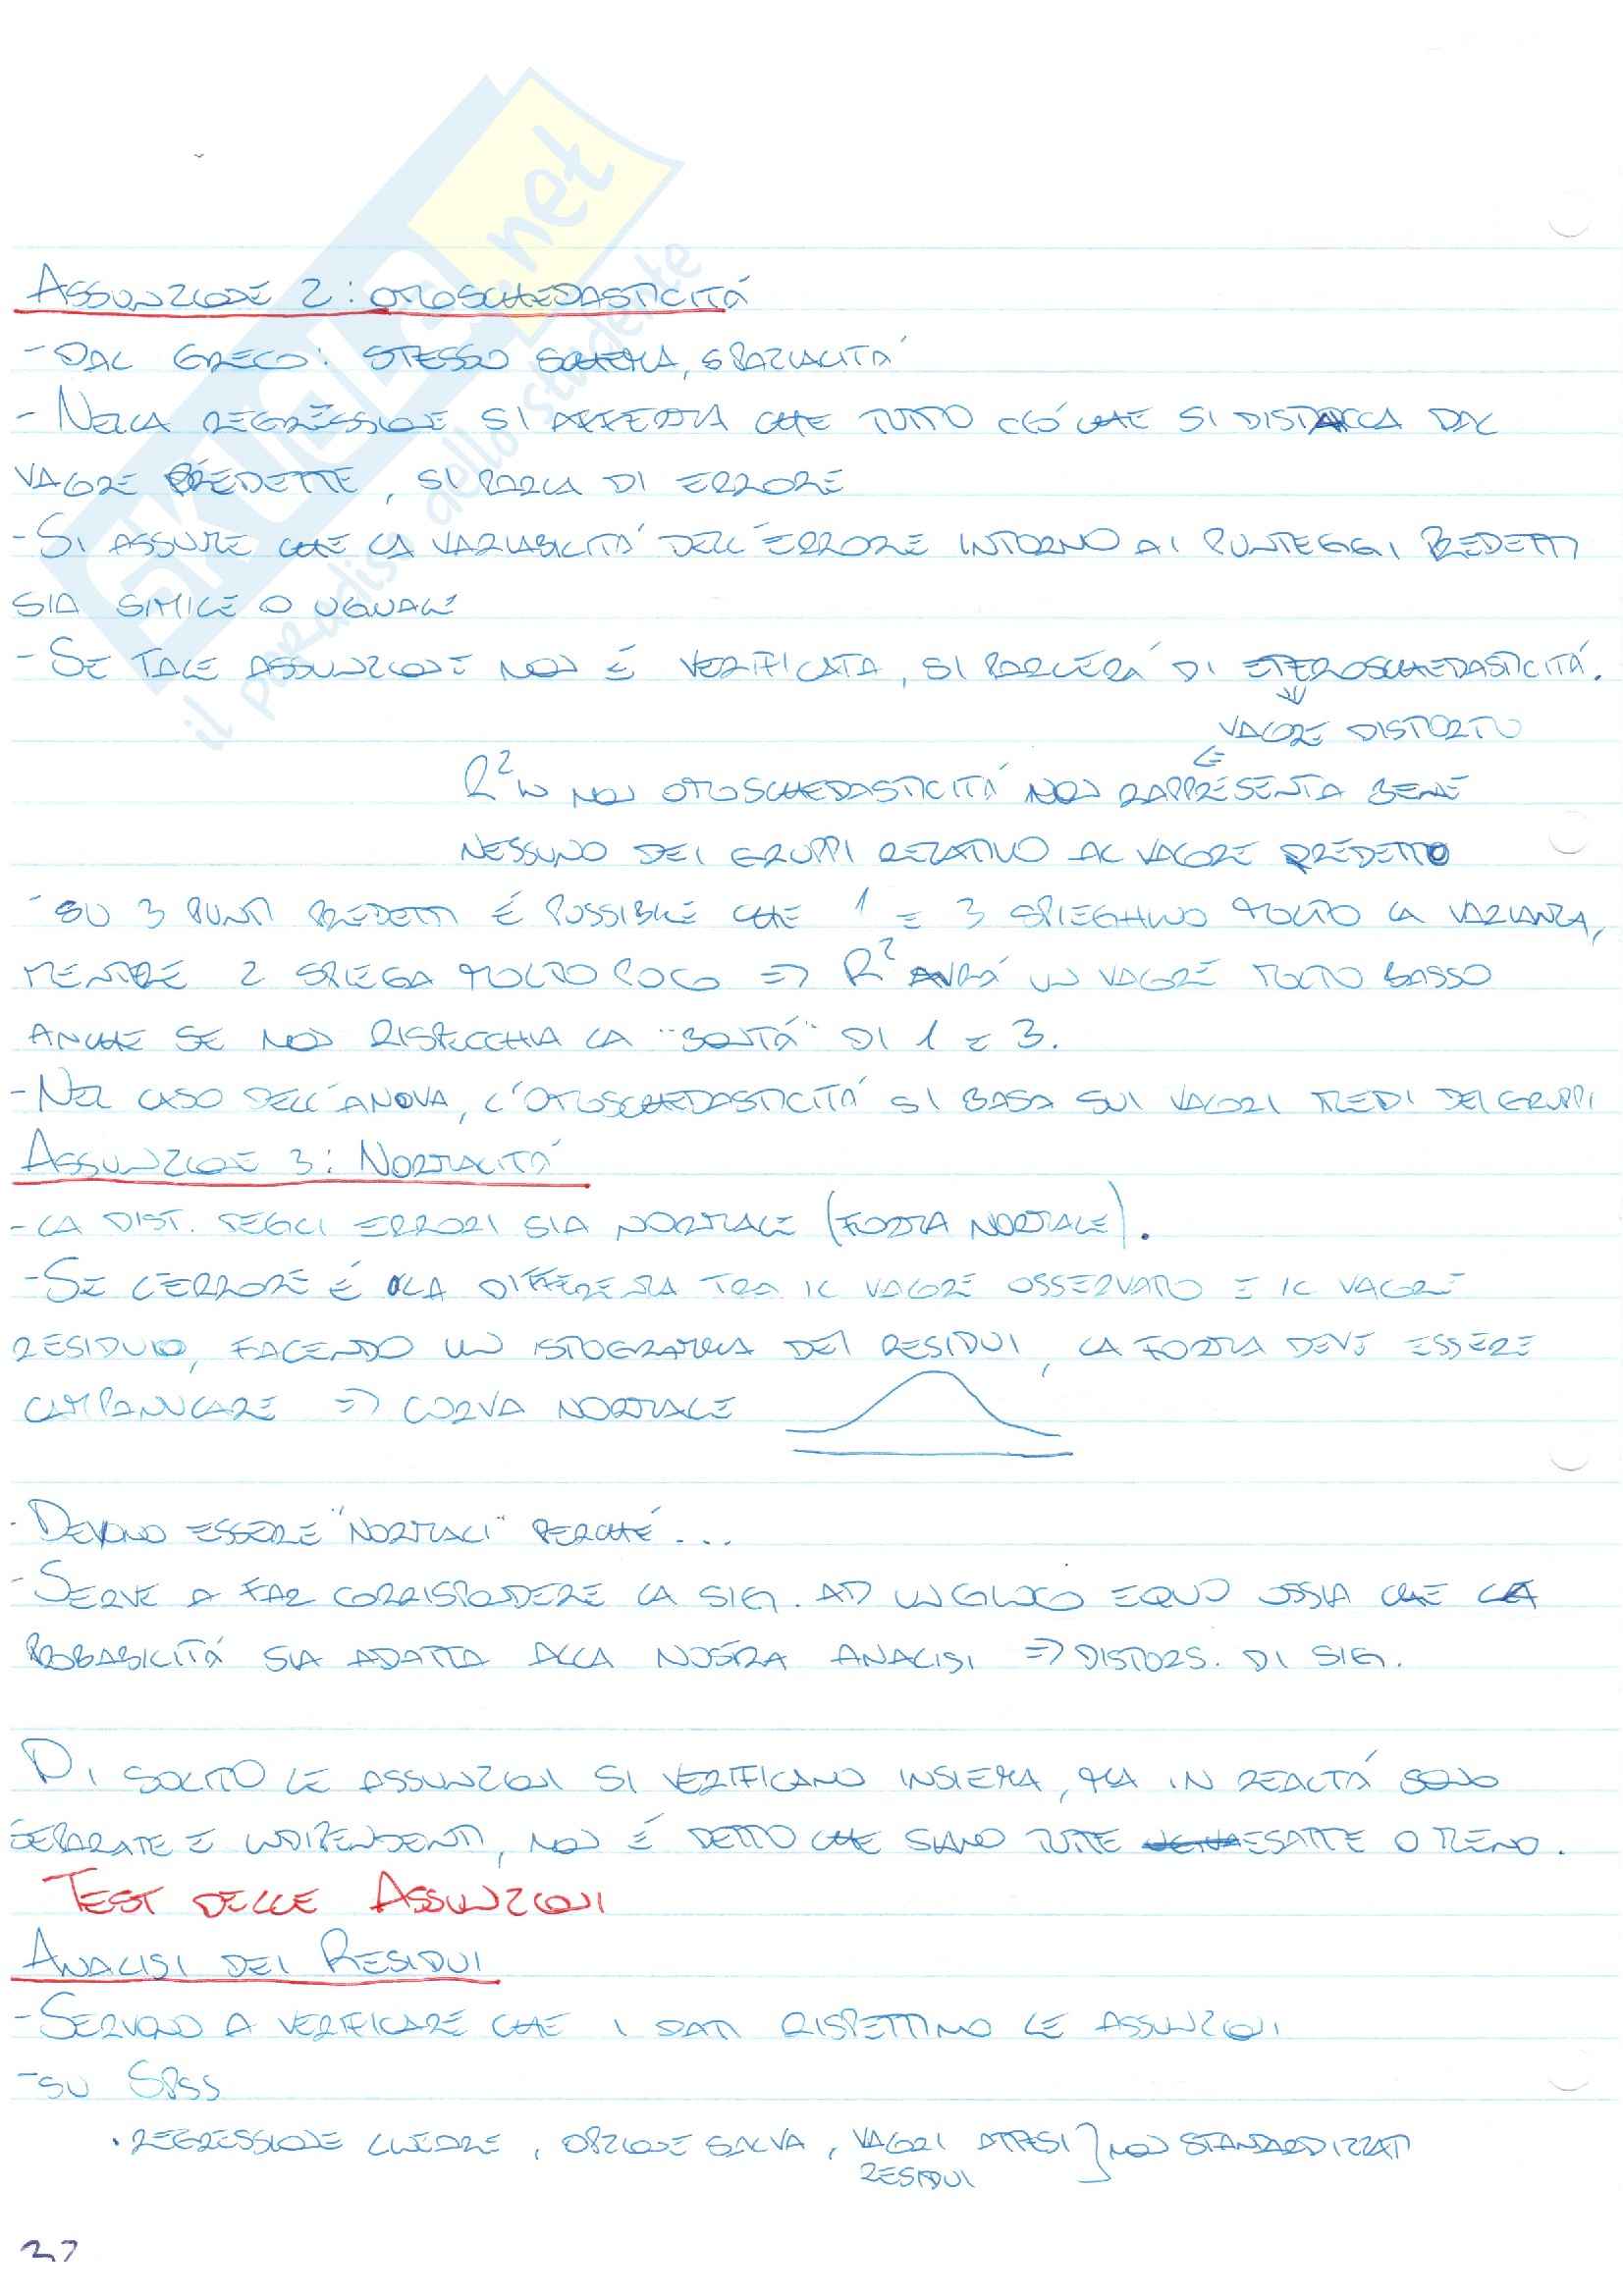 ASSUNZIONE 2: OMOSCHEDASTICITÁ
- DAL GRECO: STESSO SCHEMA, SPAZIALITA'
- NELLA REGRESSIONE SI AFFERMA CHE TUTTO CIÓ CHE SI DISTACCA DAL
VALORE PREDETTE, SI PARLA DI ERRORE
- SI ASSUME CHE LA VARIABILITA' DELL'ERRORE INTORNO AI PUNTEGGI PREDETTI
SIA SIMILE O UGUALE
- SE TALE ASSUNZIONE NON É VERIFICATA, SI PARLERÁ DI ETEROSCHEDASTICITÁ.
VALORE DISTORTO
R² IN NON OMOSCHEDASTICITÁ NON RAPPRESENTA BENE
NESSUNO DEI GRUPPI RELATIVO AL VALORE PREDETTO
- SU 3 PUNTI PREDETTI É POSSIBILE CHE 1 E 3 SPIEGHINO MOLTO LA VARIANZA,
MENTRE 2 SPIEGA MOLTO POCO => R² AVRÁ UN VALORE MOLTO BASSO
ANCHE SE NON RISPECCHIA LA "BONTÁ" DI 1 E 3.
- NEL CASO DELL'ANOVA, L'OMOSCHEDASTICITA' SI BASA SUI VALORI MEDI DEI GRUPPI
ASSUNZIONE 3: NORMALITA'
- LA DIST. DEGLI ERRORI SIA NORMALE (FORMA NORMALE).
- SE L'ERRORE É LA DIFFERENZA TRA IL VALORE OSSERVATO E IL VALORE
RESIDUO, FACENDO UN ISTOGRAMMA DEI RESIDUI, LA FORMA DEVE ESSERE
CAMPANULARE => CURVA NORMALE
- DEVONO ESSERE "NORMALI" PERCHÉ...
- SERVE A FAR CORRISPONDERE LA SIG. AD UN GIOCO EQUO OSSIA CHE LA
PROBABILITÁ SIA ADATTA ALLA NOSTRA ANALISI => DISTORS. DI SIG.
DI SOLITO LE ASSUNZIONI SI VERIFICANO INSIEMA, MA IN REALTÁ SONO
SEPARATE E INDIPENDENTI, NON É DETTO CHE SIANO TUTTE ESATTE O MENO.
TEST DELLE ASSUNZIONI
ANALISI DEI RESIDUI
- SERVONO A VERIFICARE CHE I DATI RISPETTINO LE ASSUNZIONI
- SU SPSS
• REGRESSIONE LINEARE, OPZIONE SALVA, VALORI ATTESI } NON STANDARDIZZATI
RESIDUI
37
SKUOLA.net
il paradiso dello studente